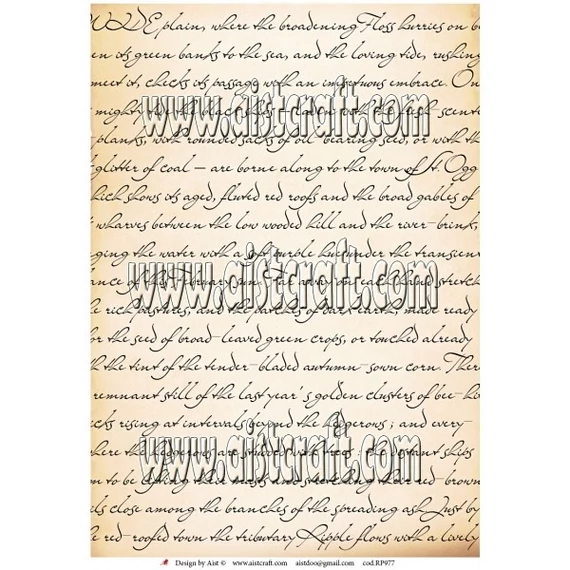 WIDE plain, where the broadening Floss hurries on b
en its green banks to the sea, and the loving tide, rushing
meet it, checks its passage with an impetuous embrace. On
mighty
www.aistcraft.com
scente
planks, with rounded sacks of oil-bearing seed, or with th
glitter of coal — are borne along to the town of St. Ogg
hich shows its aged, fluted red roofs and the broad gables of
wharves between the low wooded hill and the river-brink,
ging the water with a soft purple hue under the transient
ance of this February sun.
www.aistcraft.com
stretch
he rich pastures, and the patches of dark earth, made ready
or the seed of broad-leaved green crops, or touched already
h the tint of the tender-bladed autumn-sown corn. There
remnant still of the last year's golden clusters of bee-hi
cks rising at intervals beyond the hedgerows; and every-
here the hedgerows are studded with trees: the distant ships
www.aistcraft.com
m to be
red-brown
ils close among the branches of the spreading ash. Just by
he red-roofed town the tributary Ripple flows with a lively
Design by Aist © www.aistcraft.com aistdoo@gmail.com cod.RP977